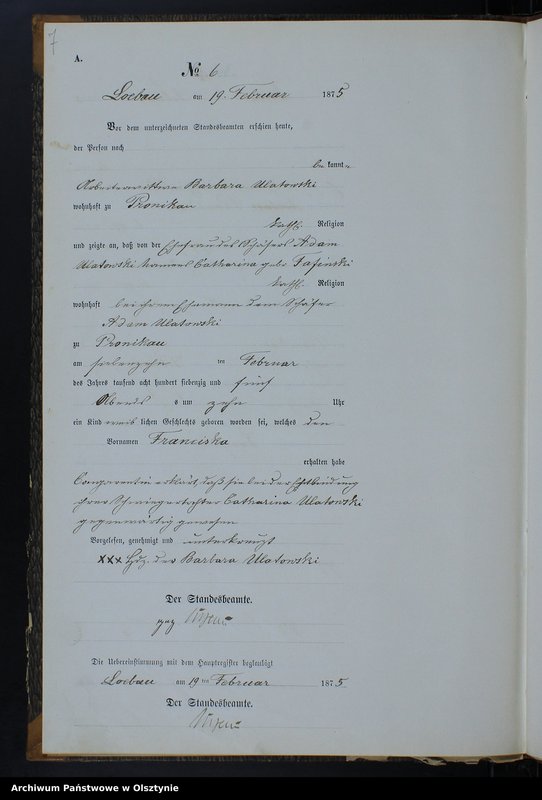 7
A.
No 6
Loebau am 19. Februar 1875
Vor dem unterzeichneten Standesbeamten erschien heute,
der Person nach
be kannt,
Arbeiterwittwe Barbara Ulatowski
wohnhaft zu Pronikau
kath. Religion
und zeigte an, daß von der Ehefrau des Schäfers Adam
Ulatowski Namens Catharina geb.
kath. Religion
wohnhaft bei ihrem Ehemann dem Schäfer
Adam Ulatowski
zu Pronikau
am siebenzehn ten Februar
des Jahres tausend acht hundert siebenzig und fünf
Abends s um zehn Uhr
ein Kind weib lichen Geschlechts geboren worden sei, welches den
Vornamen Franciska
erhalten habe
Comparentin erklärt, daß sie bei der Entbindung
ihrer Schwiegertochter Catharina Ulatowski
gegenwärtig gewesen
Vorgelesen, genehmigt und unterkreuzt
xxx Hdz. der Barbara Ulatowski
Der Standesbeamte.
gez.
Die Uebereinstimmung mit dem Hauptregister beglaubigt
Loebau am 19 ten Februar 1875
Der Standesbeamte.
Archiwum Państwowe w Olsztynie